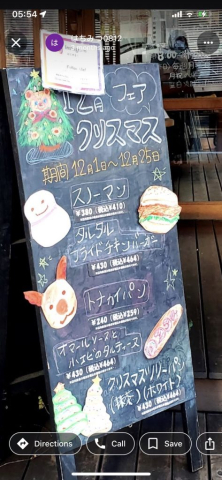 05:54
はちみつ0812
ago
12月 フェア
クリスマス
期間 12月1日〜12月25日
スノーマン
¥380 (税込¥410)
タルタル
フライドチキンバーガー
¥430 (税込¥464)
トナカイパン
¥240 (税込¥259)
オマールソースと
小エビのタルティーヌ
¥430 (税込¥464)
クリスマスツリーパン
(抹茶)(ホワイト)
¥430 (税込¥464)
Directions
Call
Save